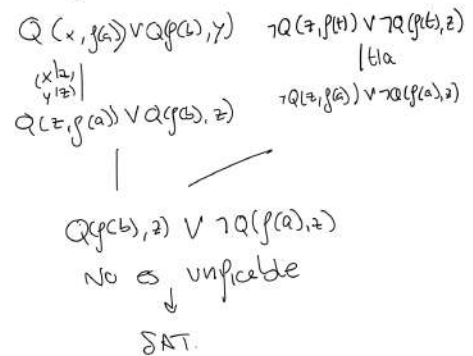 Q(x, f(a)) ∨ Q(f(b), y)
¬Q(z, f(t)) ∨ ¬Q(f(t), z)
(x|z, y|z)
t|a
Q(z, f(a)) ∨ Q(f(b), z)
¬Q(z, f(a)) ∨ ¬Q(f(a), z)
Q(f(b), z) ∨ ¬Q(f(a), z)
No es unificable
↓
SAT.